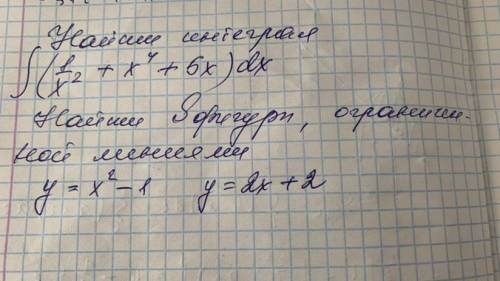 Найти интеграл
∫(1/x² + x⁴ + 5x)dx
Найти S фигуры, ограничен-
ной линиями
y = x² - 1 y = 2x + 2